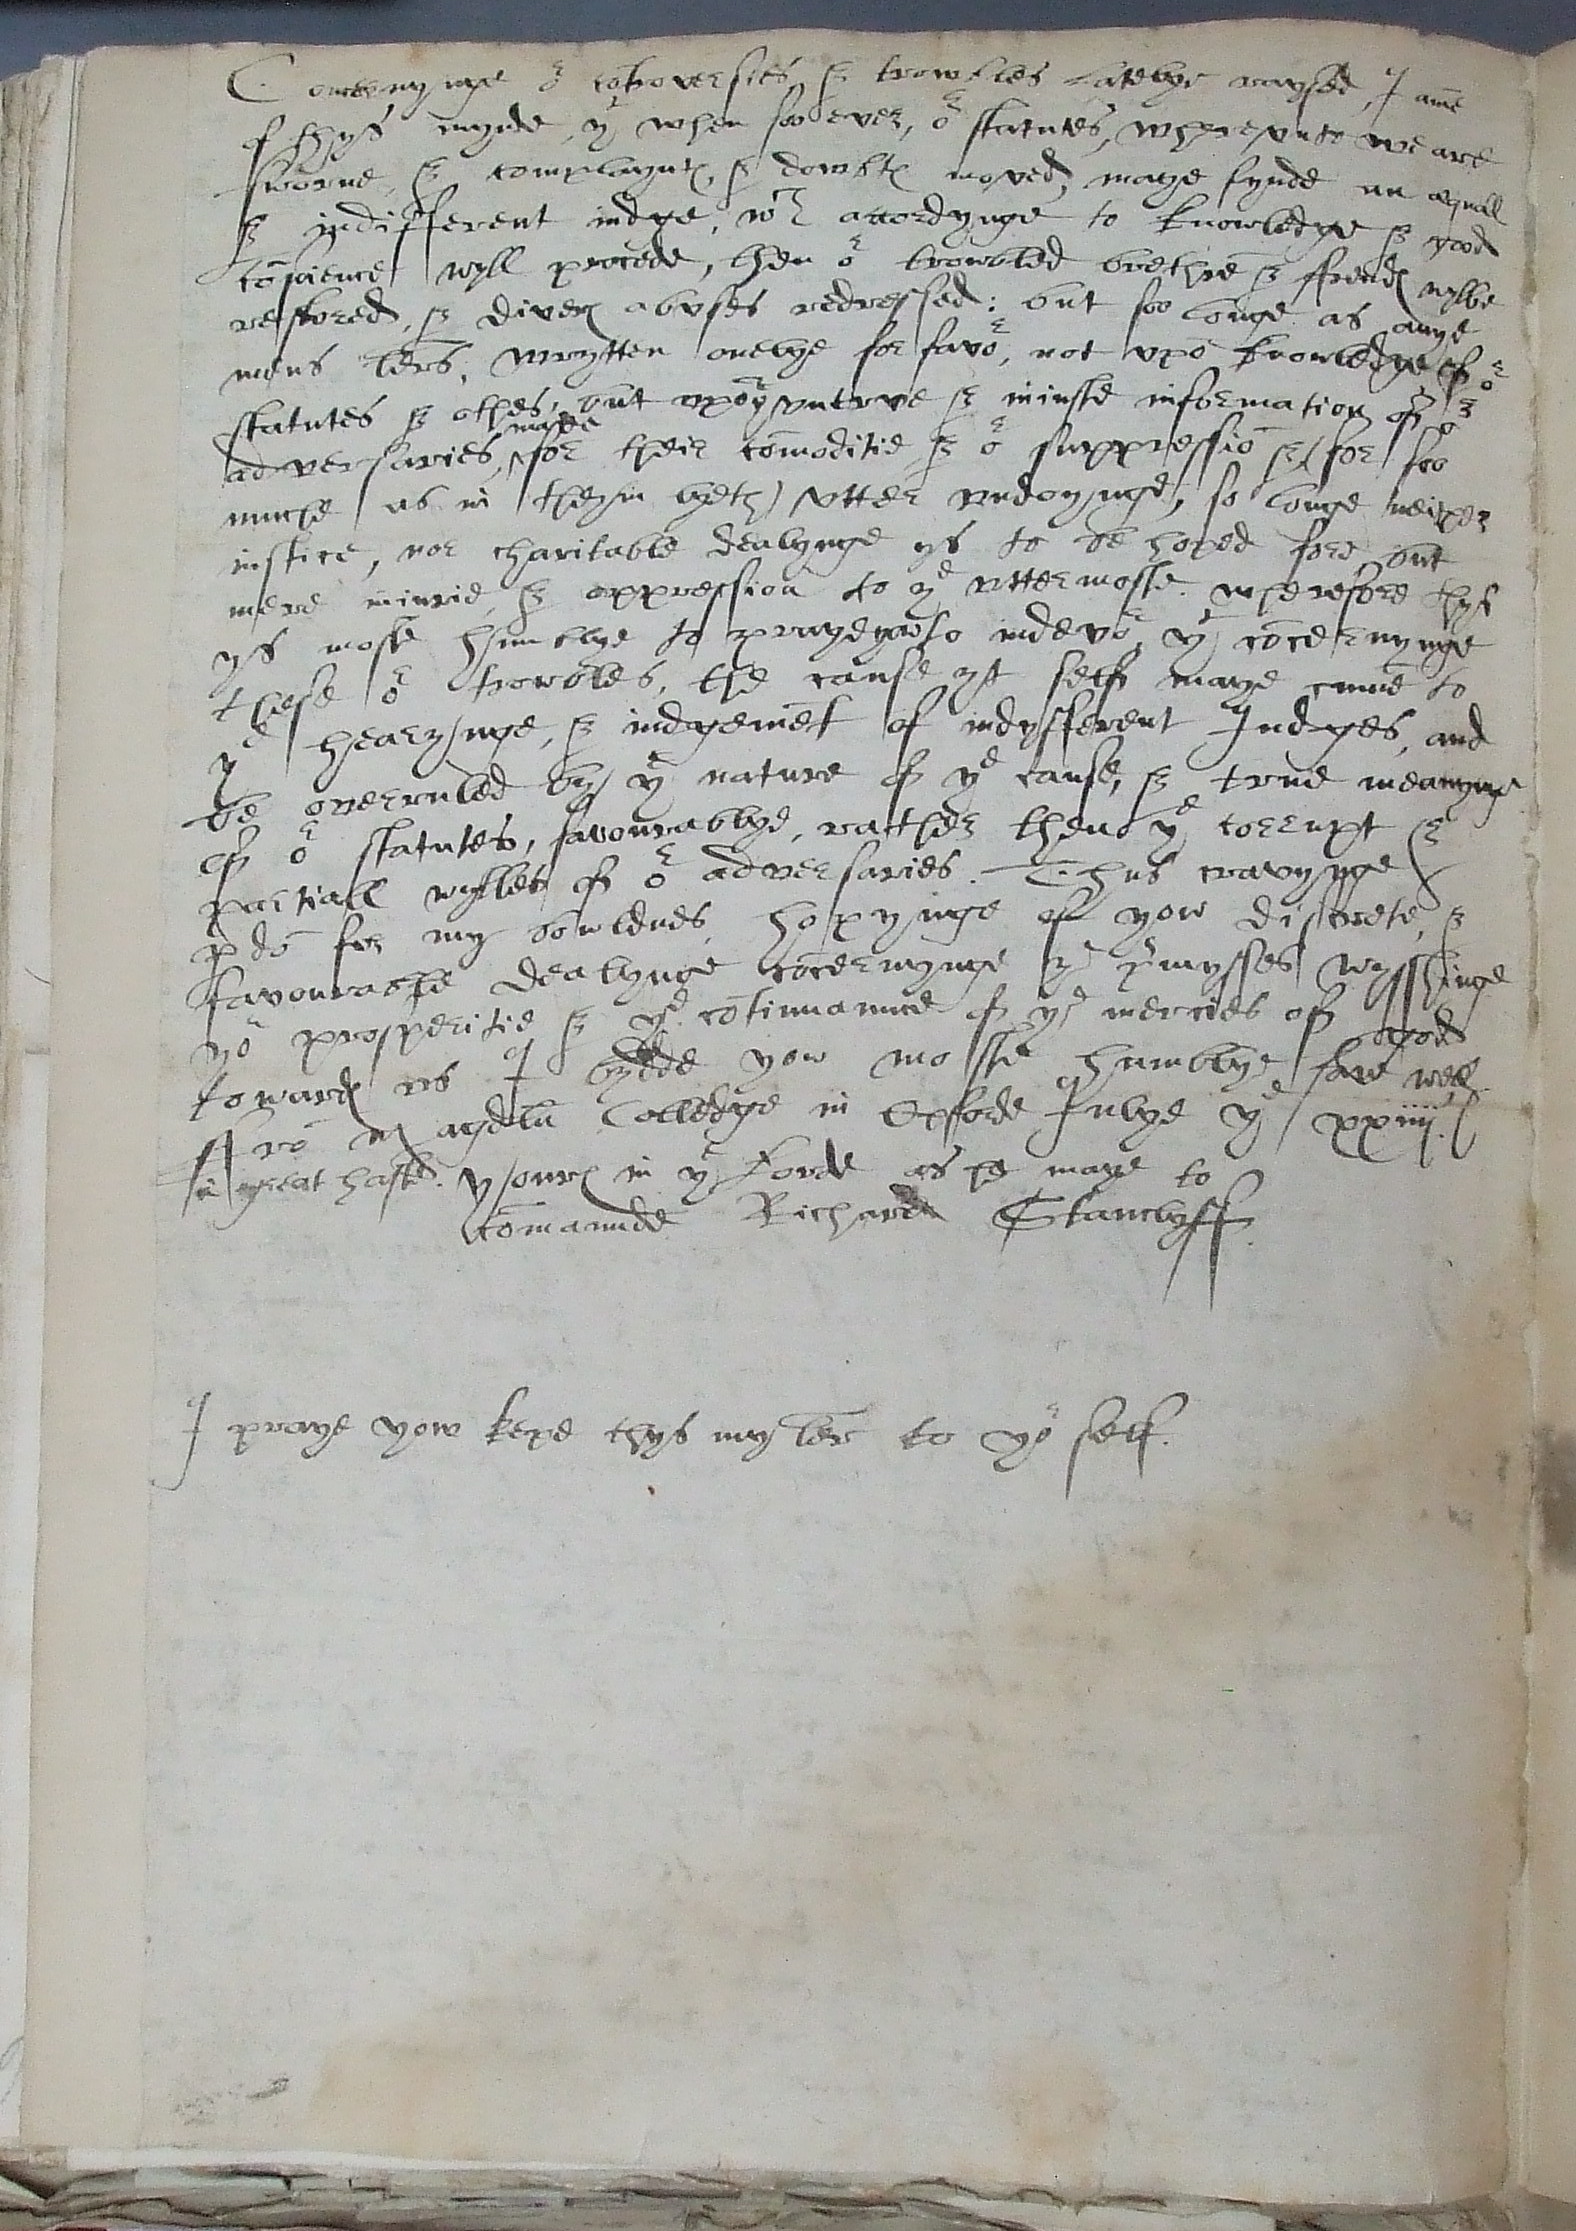 Concernynge oʳ cōtroversies & trowbles latelye raysed, I ame
of thys mynde, yᵗ when soo ever, oʳ statutes, wherevnto we are
sworne, & complaynts, & dowbts moved, maye fynde an æquall
& indifferent iudge, wᶜ accordynge to knowledge & good
cōscience wyll procede, then oʳ trowbled brethrē & ffrends wylbe
restored, & divers abvses redressed: but soo longe as anye
mens lērs, wrytten onelye for favoʳ, not vpō knowledge of oʳ
statutes & othes, but vpō yᵉ vntrve & iniuste information of oʳ
adversaries, made for their cōmoditie, & oʳ suppressiō & (for soo
muche as in theym lyeth) vtter vndoynge, so longe neither
iustice, nor charitable dealynge ys to be hoped fore, but
mere iniurie, & oppression to yᵉ vttermoste. wherefore thys
ys moste humblye to praye yow so indevoʳ, yᵗ cōcernynge
these oʳ trowbles, the cause yt self maye cume to
yᵉ hearynge, & iudgemēt of indyfferent Iudges, and
be overruled by yᵉ nature of yᵉ cause, & true meanynge
of oʳ statutes, favourablye, rather then yᵉ corrupt &
partiall wylles of oʳ adversaries. Thus cravynge
pdō for my bowldnes, hopynge of yow discrete, &
favourable dealynge cōcernynge yᵉ pmysses wysshinge
yoʳ prosperitie & yᵉ cōtinuaunce of yᵉ mercies of god
towards vs I bydde yow moste humblye fare well.
ffrō Magdln Colledge in Oxforde Iulye yᵉ xxiiij.
in great haste. yours in yᵉ Lorde as he maye to
cōmaunde Richard Stanclyff.
I praye yow kepe thys my lēr to yoʳ self.